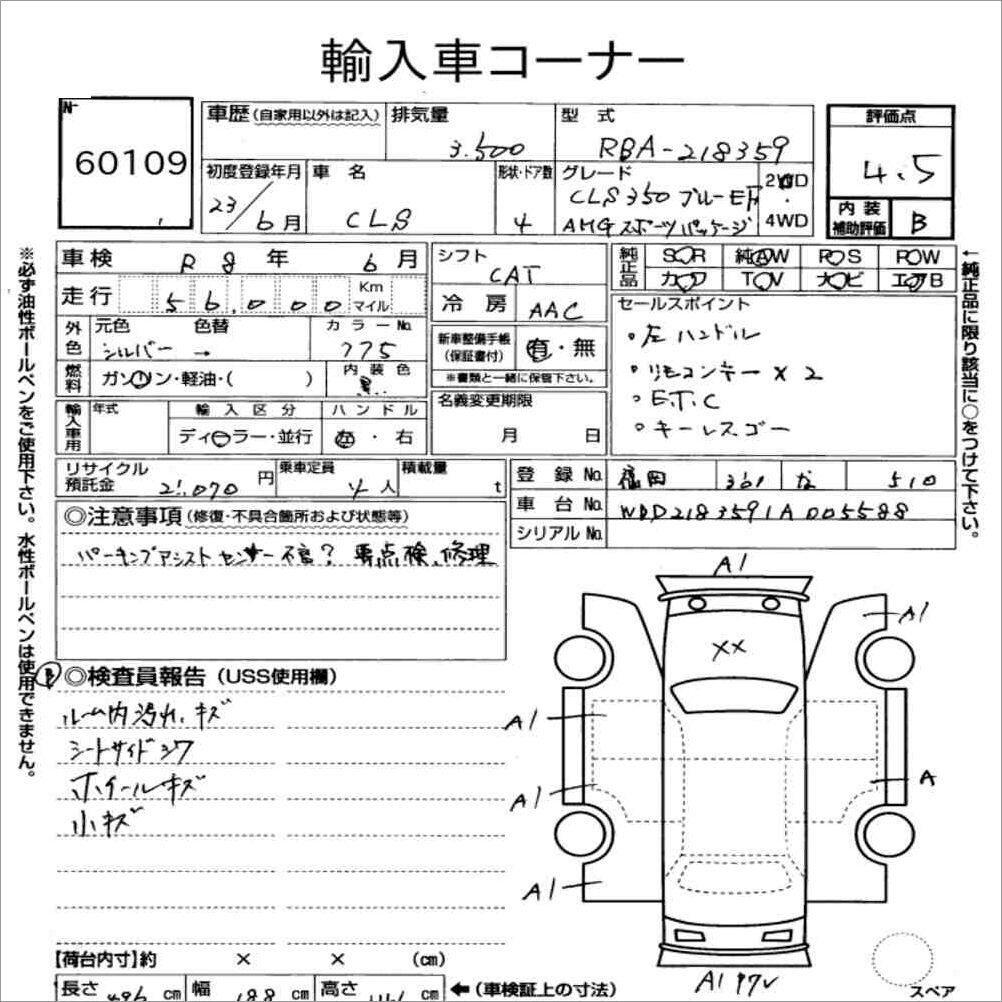 輸入車コーナー
60109
車歴 (自家用以外は記入) 排気量 3.500 型式 RBA-218359 評価点 4.5
初度登録年月 23/6月 車名 CLS 形状・ドア数 4 グレード CLS350 ブルーEF AMG スポーツパッケージ 2WD・4WD
内装補助評価 B
車検 R8年 6月 シフト CAT 純正品 SR 純AW PS PW
走行 56,000 Km マイル 冷房 AAC カワ TV ナビ エアB
外色 元色 シルバー 色替 → カラーNo. 775 新車整備手帳 (保証書付) 有・無
※書類と一緒に保管下さい。
燃料 ガソリン・軽油・( ) 内装色 黒 名義変更期限 月 日
輸入車用 年式 輸入区分 ディーラー・並行 ハンドル 左・右
セールスポイント
・左ハンドル
・リモコンキー×2
・E.T.C
・キーレスゴー
リサイクル預託金 21,070円 乗車定員 4人 積載量 t
登録No. 福岡 361 な 510
車台No. WDD2183591A005588
シリアルNo.
◎注意事項 (修復・不具合箇所および状態等)
パーキングアシストセンサー不良? 要点検、修理
B ◎検査員報告 (USS使用欄)
ルーム内汚れ、キズ
シートサイドシワ
ホイールキズ
小キズ
A1
A1
××
A1
A
A1
A1
A1
スペア
【荷台内寸】約 × × (cm)
長さ 496 cm 幅 188 cm 高さ cm ←(車検証上の寸法)
※必ず油性ボールペンをご使用下さい。水性ボールペンは使用できません。
←純正品に限り該当に○をつけて下さい。